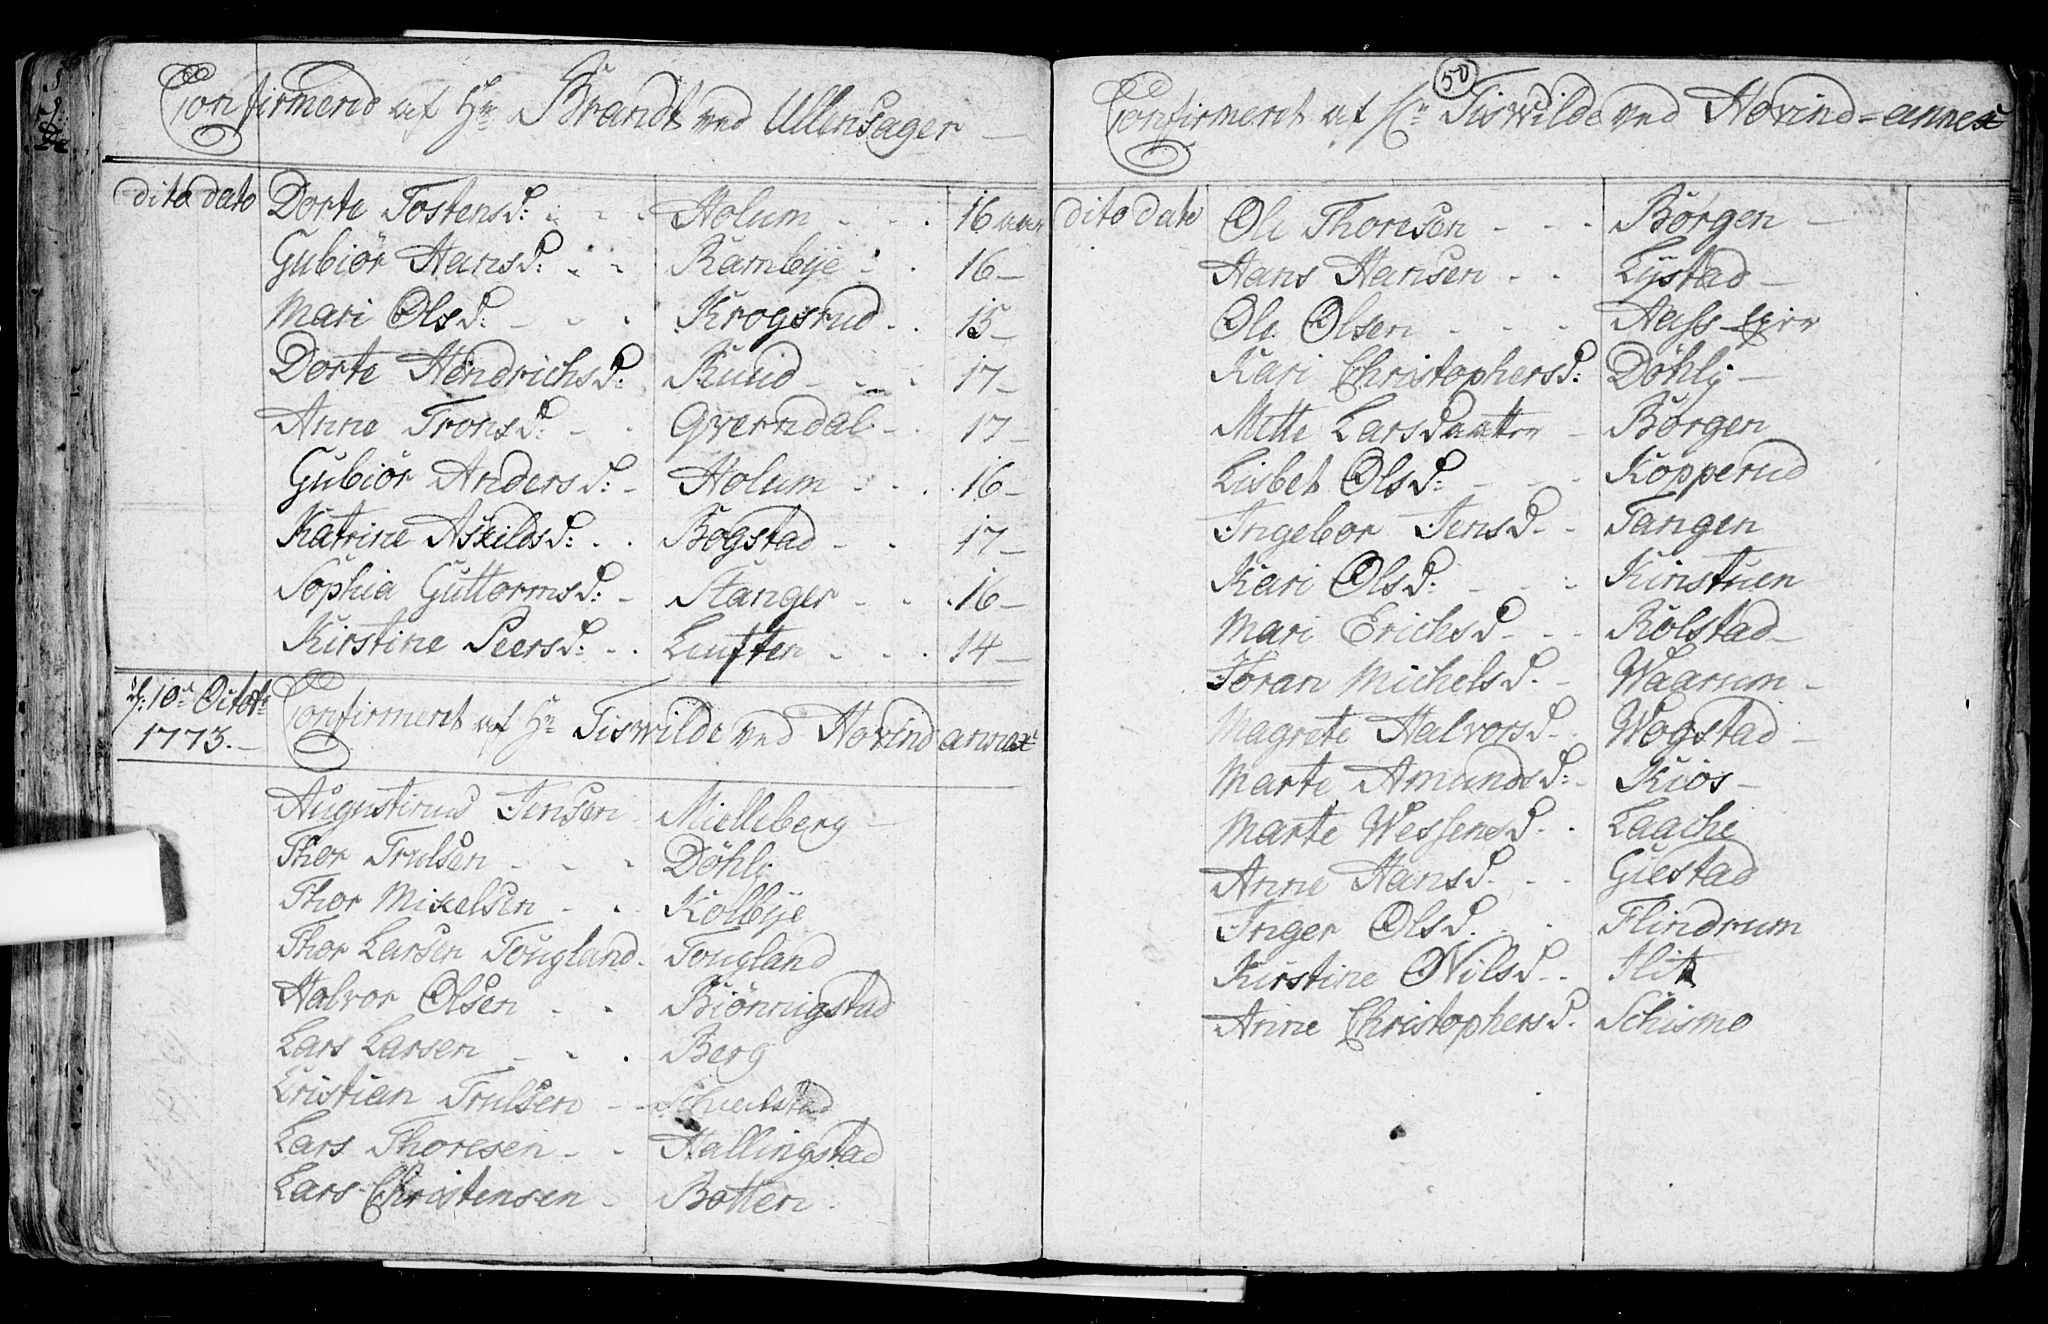 Confirmerid af Hr Brandt ved Ullensager
dito dato Dorte Tostensd: Holum 16 aar
Gubiör Hansd: Rambye 16
Mari Olsd: Krogsrud 15
Dorte Hendrichsd: Ruud 17
Anne Tronsd: Qverndal 17
Gubiör Andersd: Holum 16
Katrine Askildsd: Bogstad 17
Sophia Guttormsd: Stanger 16
Kirstine Peersd: Luuften 14
d: 10d Octobr 1773. Confirmeret af Hr Tiswilde ved Hovind annex
Augustinus Jensen Mielleberg
Thor Trulsen Döhli
Thor Mikelsen Kolbye
Thor Larsen Fougland Fougland
Halvor Olsen Biönnigstad
Lars Larsen Berg
Cristian Trulsen
Lars Thoresen Hallingstad
Lars Christensen Botten
50
Confirmeret af Hr Tiswilde ved Hovind annex
dito dato Ole Thoresen Börgen
Hans Hansen Lystad
Ole Olsen Næss
Kari Christophersd: Döhli
Mette Larsdaatter Börgen
Lisbet Olsd: Kopperud
Ingebor Jensd. Tangen
Kari Olsd: Kinstuen
Mari Erichsd. Rolstad
Joran Michelsd. Waarum
Magrete Halvorsd. Wogstad
Marte Amundsd: Kiös
Marte Wessensd. Laache
Anne Hansd. Giestad
Inger Olsd. Flindrum
Kirstine Nilsd.
Anne Christophersd. Schismo